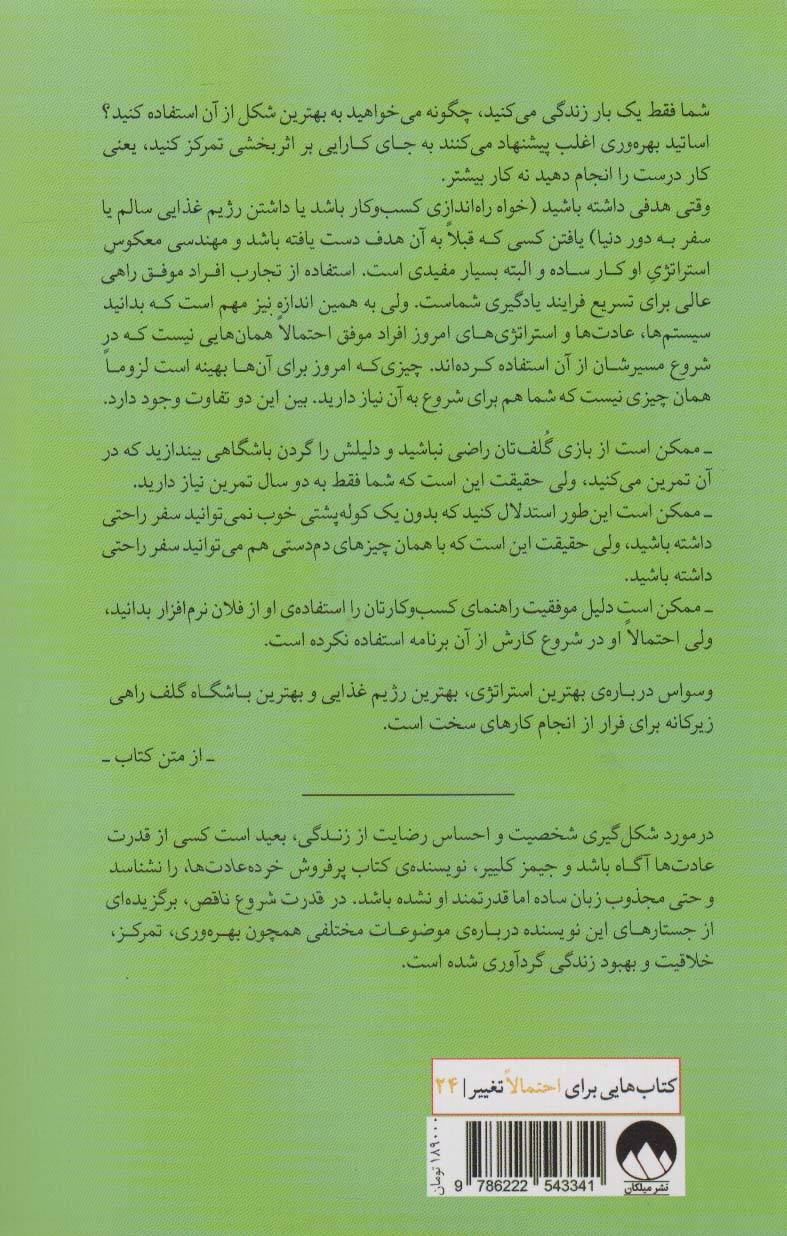 شما فقط یک بار زندگی می‌کنید، چگونه می‌خواهید به بهترین شکل از آن استفاده کنید؟
اساتید بهره‌وری اغلب پیشنهاد می‌کنند به جای کارایی بر اثربخشی تمرکز کنید، یعنی
کار درست را انجام دهید نه کار بیشتر.
وقتی هدفی داشته باشید (خواه راه‌اندازی کسب‌وکار باشد یا داشتن رژیم غذایی سالم یا
سفر به دور دنیا) یافتن کسی که قبلاً به آن هدف دست یافته باشد و مهندسی معکوسِ
استراتژیِ او کار ساده و البته بسیار مفیدی است. استفاده از تجارب افراد موفق راهی
عالی برای تسریع فرایند یادگیری شماست. ولی به همین اندازه نیز مهم است که بدانید
سیستم‌ها، عادت‌ها و استراتژی‌های امروز افراد موفق احتمالاً همان‌هایی نیست که در
شروع مسیرشان از آن استفاده کرده‌اند. چیزی‌که امروز برای آن‌ها بهینه است لزوماً
همان چیزی نیست که شما هم برای شروع به آن نیاز دارید. بین این دو تفاوت وجود دارد.
ـ ممکن است از بازی گُلف‌تان راضی نباشید و دلیلش را گردن باشگاهی بیندازید که در
آن تمرین می‌کنید، ولی حقیقت این است که شما فقط به دو سال تمرین نیاز دارید.
ـ ممکن است این‌طور استدلال کنید که بدون یک کوله‌پشتی خوب نمی‌توانید سفر راحتی
داشته باشید، ولی حقیقت این است که با همان چیزهای دم‌دستی هم می‌توانید سفر راحتی
داشته باشید.
ـ ممکن است دلیل موفقیت راهنمای کسب‌وکارتان را استفاده‌ی او از فلان نرم‌افزار بدانید،
ولی احتمالاً او در شروع کارش از آن برنامه استفاده نکرده است.
وسواس درباره‌ی بهترین استراتژی، بهترین رژیم غذایی و بهترین باشگاه گلف راهی
زیرکانه برای فرار از انجام کارهای سخت است.
ـ از متن کتاب ـ
درمورد شکل‌گیری شخصیت و احساس رضایت از زندگی، بعید است کسی از قدرت
عادت‌ها آگاه باشد و جیمز کلییر، نویسنده‌ی کتاب پرفروش خرده‌عادت‌ها، را نشناسد
و حتی مجذوب زبان ساده اما قدرتمند او نشده باشد. در قدرت شروع ناقص، برگزیده‌ای
از جستارهای این نویسنده درباره‌ی موضوعات مختلفی همچون بهره‌وری، تمرکز،
خلاقیت و بهبود زندگی گردآوری شده است.
کتاب‌هایی برای احتمالاً تغییر | ۲۴
۱۸۹۰۰۰ تومان
9 786222 543341
نشر میلکان